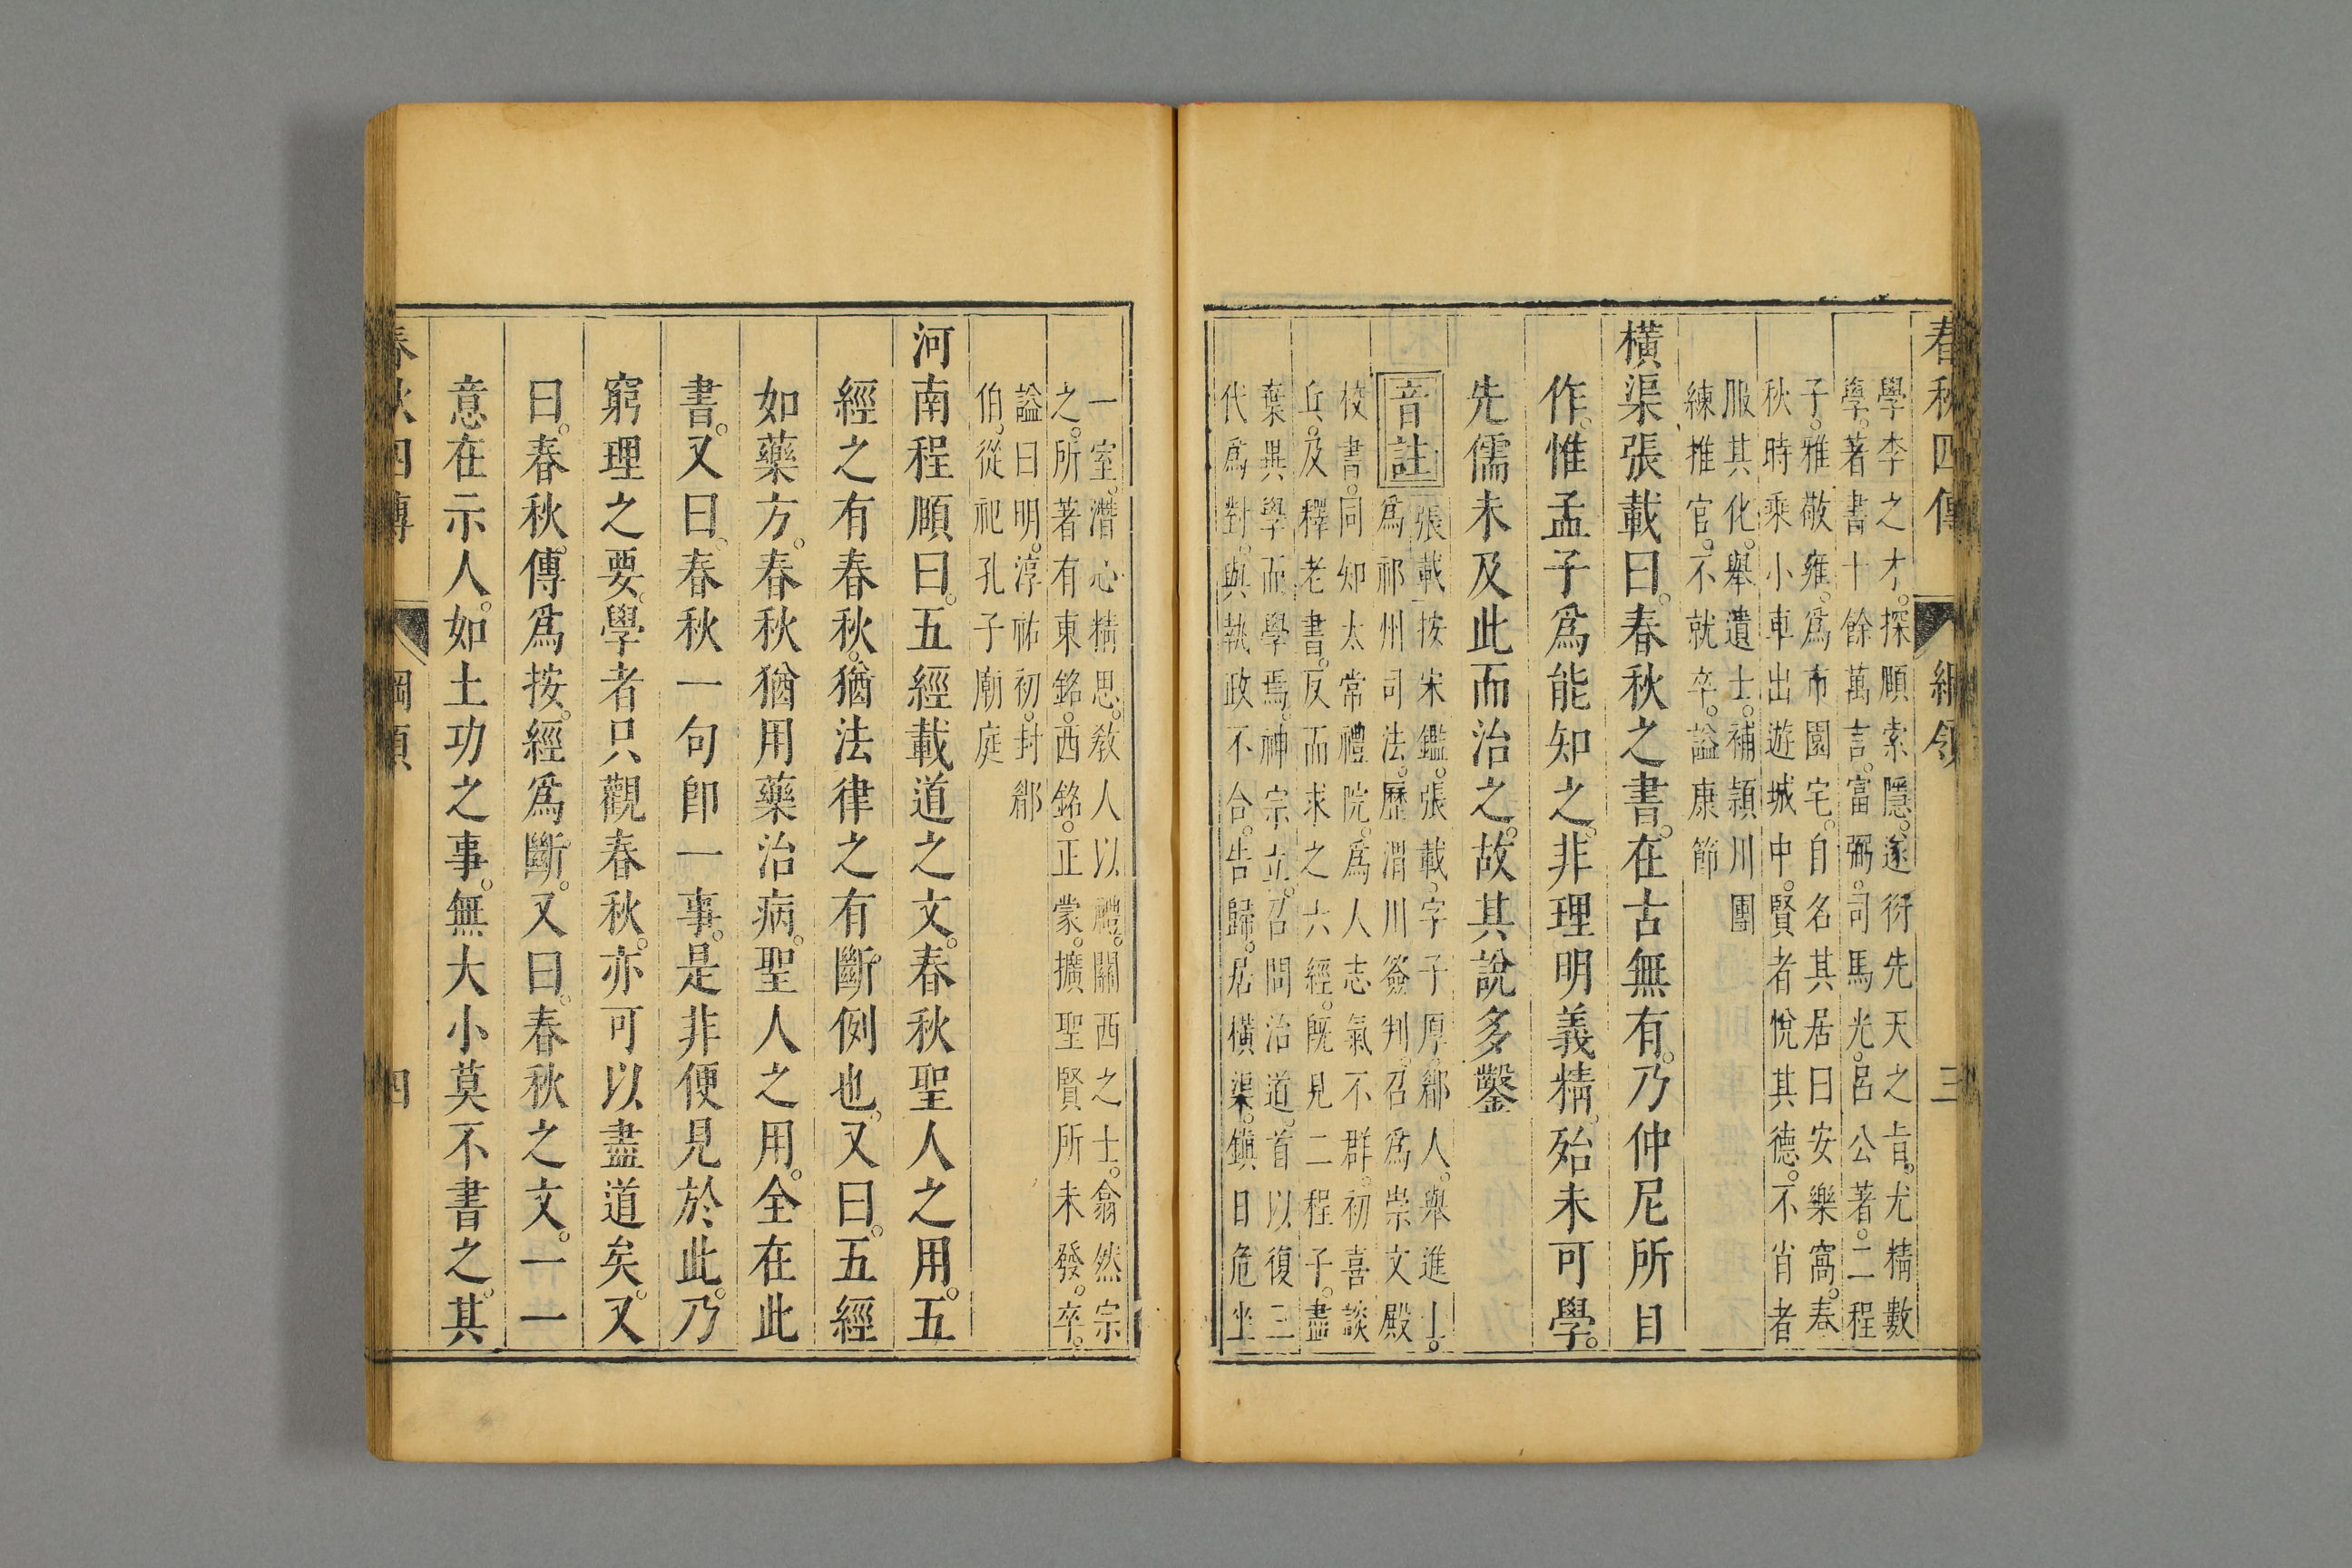 春秋四傳　綱領　三
學李之才。探賾索隱。遂衍先天之旨。尤精數
學。著書十餘萬言。富弼。司馬光。呂公著。二程
子。雅敬雍。爲市園宅。自名其居曰安樂窩。春
秋時乘小車出遊城中。賢者悅其德。不肖者
服其化。舉遺士。補潁川團
練推官。不就卒。謚康節
橫渠張載曰。春秋之書。在古無有。乃仲尼所自
作。惟孟子爲能知之。非理明義精。殆未可學。
先儒未及此而治之。故其說多鑿
音註
張載按宋鑑。張載。字子厚。郿人。舉進士。
爲祁州司法。歷渭川簽判。召爲崇文殿
校書。同知太常禮院。爲人志氣不群。初喜談
兵。及釋老書。反而求之六經。既見二程子。盡
棄異學而學焉。神宗立。召問治道。首以復三
代爲對。與執政不合。告歸。居橫渠。鎮日危坐
一室。潛心精思。敎人以禮。關西之士。翕然宗
之。所著有東銘。西銘。正蒙。擴聖賢所未發。卒。
謚曰明。淳祐初。封郿
伯。從祀孔子廟庭
河南程頤曰。五經載道之文。春秋聖人之用。五
經之有春秋。猶法律之有斷例也。又曰。五經
如藥方。春秋猶用藥治病。聖人之用。全在此
書。又曰。春秋一句卽一事。是非便見於此。乃
窮理之要。學者只觀春秋。亦可以盡道矣。又
曰。春秋。傳爲按。經爲斷。又曰。春秋之文。一一
意在示人。如土功之事。無大小莫不書之。其
春秋四傳　綱領　四